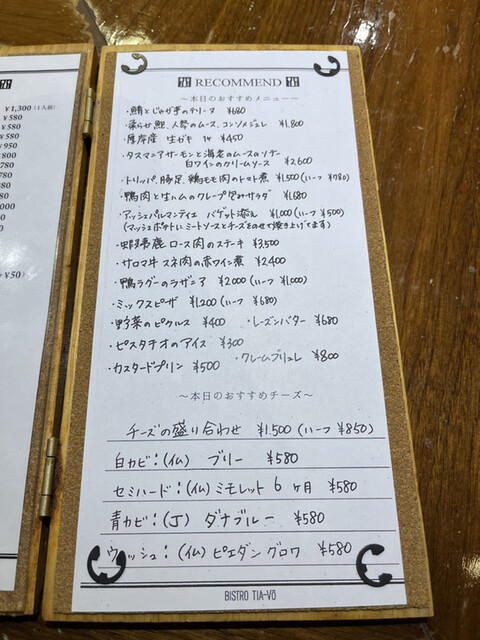 ¥1,300 (1人前)
¥580
¥580
950
000
780
580
580
580
580
580
¥50〉
RECOMMEND
〜本日のおすすめメニュー〜
・鯖とじゃが芋のテリーヌ ¥680
、人参のムース、コンソメジュレ ¥1,800
・厚岸産 生ガキ 1ケ ¥450
・タスマニアサーモンと海老のムースのソテー
白ワインのクリームソース ¥2,600
・トリッパ、豚足、鶏モモ肉のトマト煮 ¥1,500 (ハーフ ¥980)
・鴨肉と生ハムのクレープ包みサラダ ¥1,680
・アッシェパルマンティエ バゲット添え ¥1,000 (ハーフ ¥500)
(マッシュポテトにミートソースとチーズをのせて焼き上げてます)
・蝦夷鹿 ロース肉のステーキ ¥3,500
・サロマ牛 スネ肉の赤ワイン煮 ¥2,400
・鴨ラグーのラザニア ¥2,000 (ハーフ ¥1,000)
・ミックスピザ ¥1,200 (ハーフ ¥680)
・野菜のピクルス ¥400 ・レーズンバター ¥680
・ピスタチオのアイス ¥300
・カスタードプリン ¥500 ・クレームブリュレ ¥800
〜本日のおすすめチーズ〜
チーズの盛り合わせ ¥1,500 (ハーフ ¥850)
白カビ:(仏) ブリー ¥580
セミハード:(仏) ミモレット 6ヶ月 ¥580
青カビ:(J) ダナブルー ¥580
ウォッシュ:(仏) ピエダングロワ ¥580
BISTRO TIA-VO